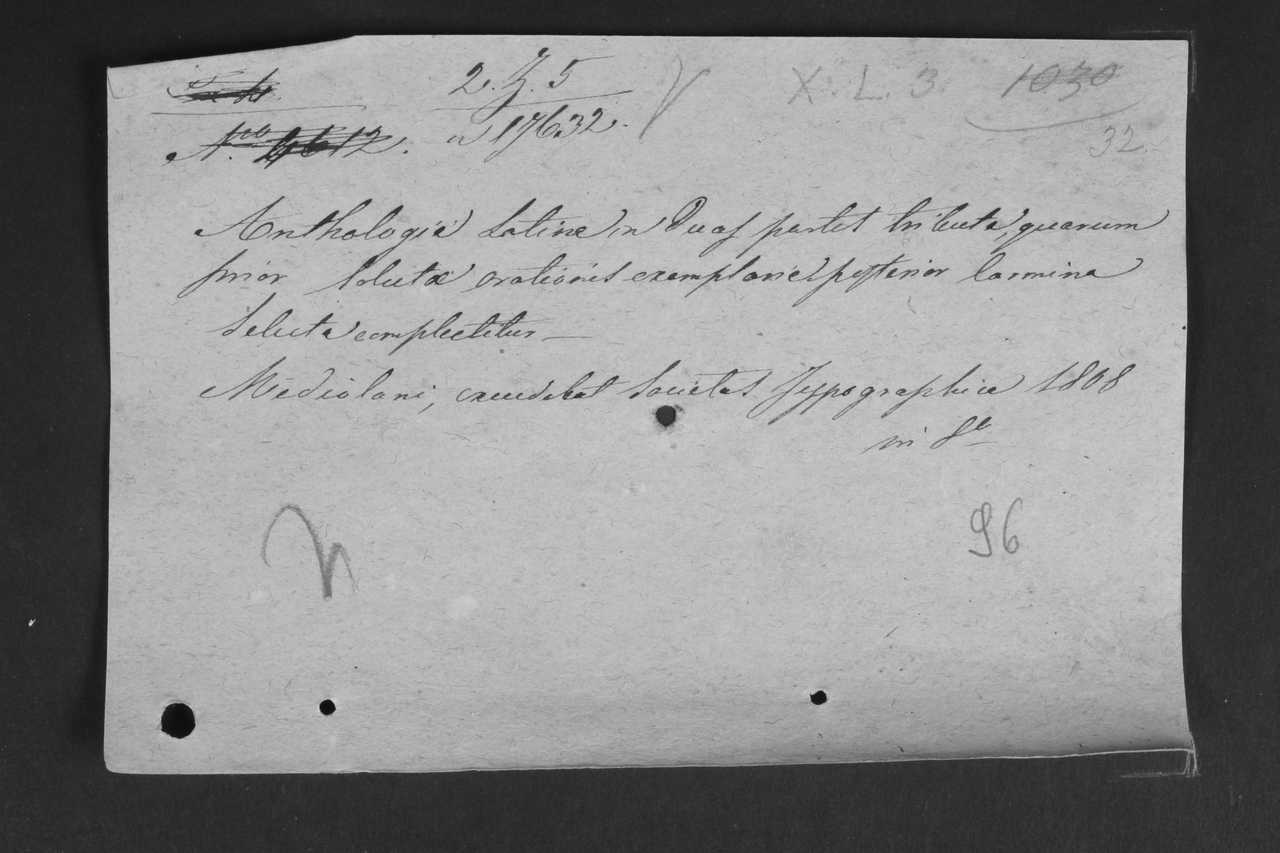 2. Z. 5
X. L. 3. 1030
N.ro 4612. n 176.32.
32.
Anthologia Latina in Duas partes tributa, quarum
prior solutæ orationis exemplaries posterior Carmina
Selecta complectitur —
Mediolani, excudebat Societas Typographica 1808
in 8.o
96